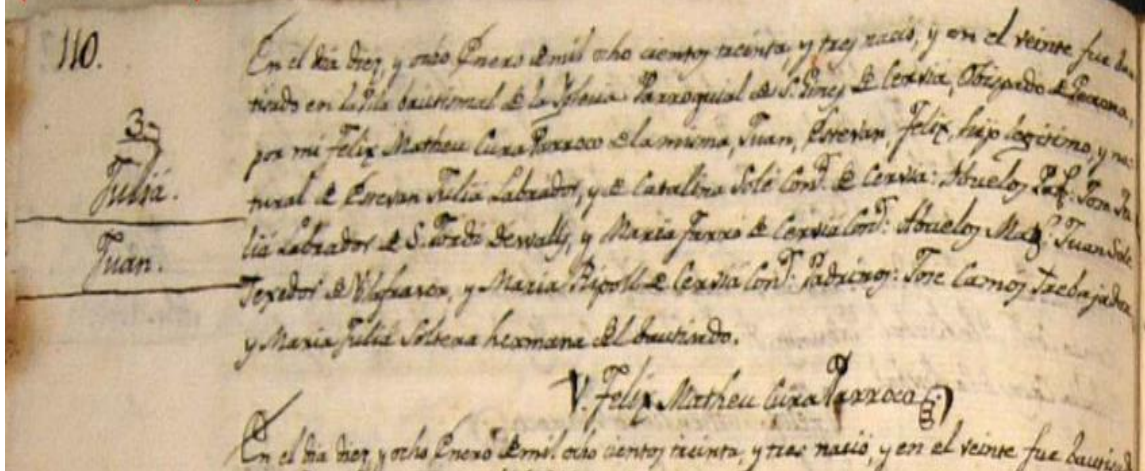 110.
3
Juliá.
Juan.
En el dia diez, y ocho Enero de mil ocho cientos treinta, y tres nació, y en el veinte fue bau
tizado en la Pila bautismal de la Iglesia Parroquial de Sn. Gines de Cervia, Obispado de Gerona,
por mi Felix Matheu Cura Parroco de la misma, Juan, Estevan, Felix, hijo legitimo, y na
tural de Estevan Juliá Labrador, y de Catalina Solé Cons. de Cervia: Abuelos Pat.s: Jose Ju
liá Labrador de S. Jordi Desvalls, y Maria Farro de Cervia Cons.: Abuelos Mat.s: Juan Solé
Texedor de Vilafraser, y Maria Ripoll de Cervia Cons.: Padrinos: Jose Camos Trebajador
y Maria Juliá Soltera hermana del bautizado.
V. Felix Matheu Cura Parroco
En el dia diez, y ocho Enero de mil ocho cientos treinta, y tres nació, y en el veinte fue bautizad